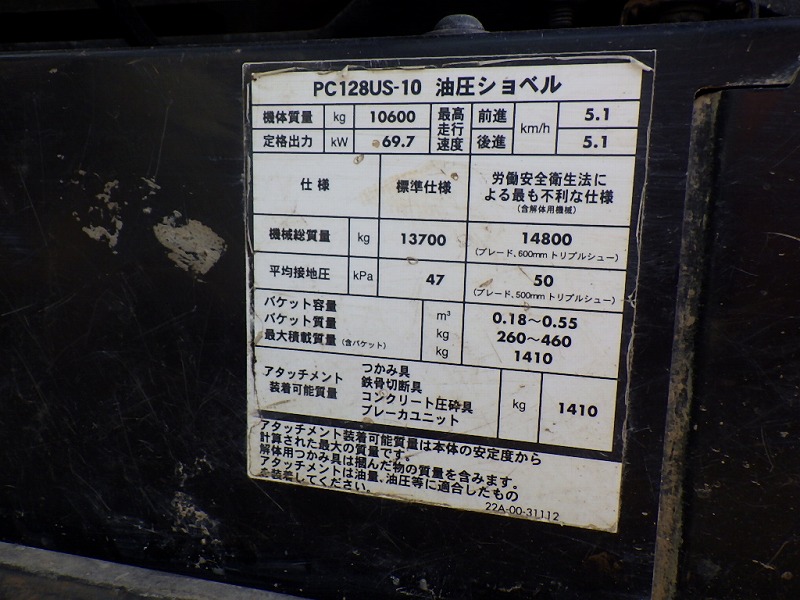 PC128US-10 油圧ショベル
機体質量 kg 10600 最高走行速度 前進 km/h 5.1
定格出力 kW 69.7 後進 5.1
仕様 標準仕様 労働安全衛生法による最も不利な仕様
(含解体用機械)
機械総質量 kg 13700 14800
(ブレード、600mmトリプルシュー)
平均接地圧 kPa 47 50
(ブレード、500mmトリプルシュー)
バケット容量 m³ 0.18～0.55
バケット質量 kg 260～460
最大積載質量 (含バケット) kg 1410
アタッチメント装着可能質量 つかみ具
鉄骨切断具
コンクリート圧砕具
ブレーカユニット
kg 1410
アタッチメント装着可能質量は本体の安定度から
計算された最大の質量です。
解体用つかみ具は掴んだ物の質量を含みます。
アタッチメントは油量、油圧等に適合したもの
を装着してください。
22A-00-31112